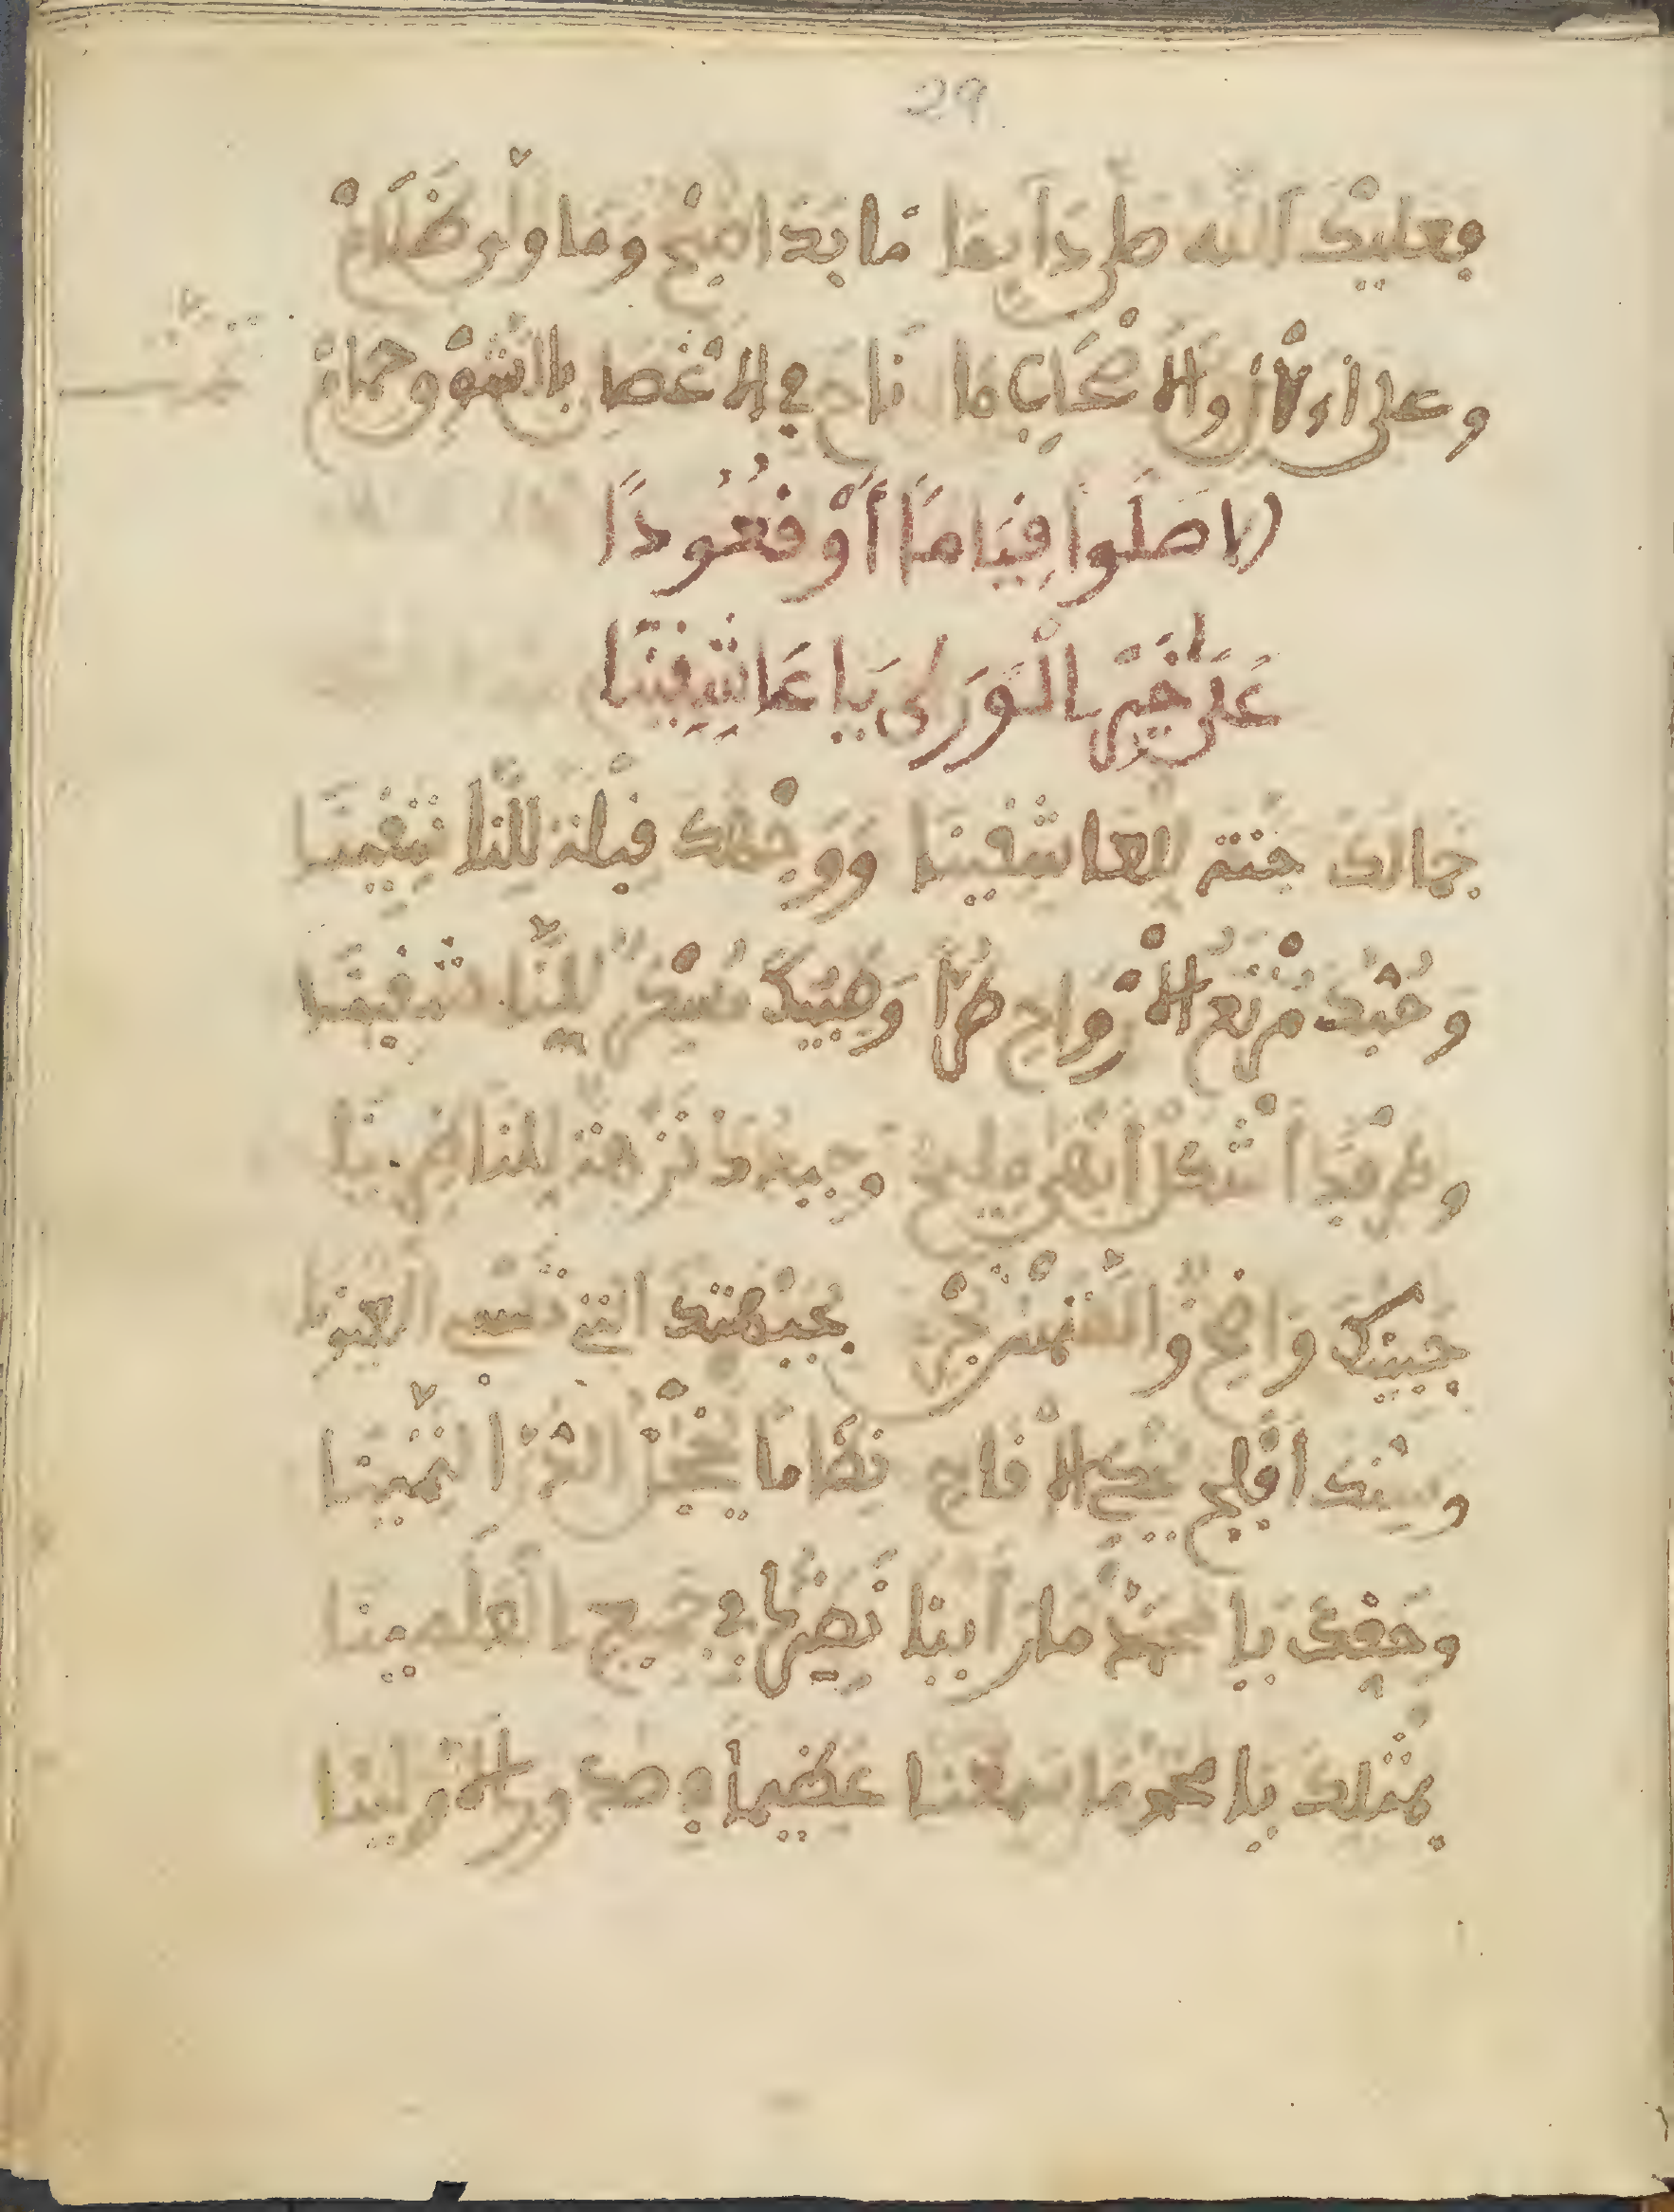 29
فعليك الله صلى دايما ما بدا صبح وما ولى ظلام
وعلى الآل والاصحاب ما ناح في الاغصا بالشوق حمام
الا صلوا قياما أو قعودا
على خير الورى يا عاشقينا
جمالك جنة للعاشقينا ووجهك قبلة للناشقينا
وحبك مرتع الارواح طرا وطيبك مسك للناشقينا
وطرفك اشكل ابهى مليح وجيدك نزهة للناظرينا
جبينك واضح والشمس تجري بجبهتك التي تسبي العيونا
وسنك افلج يحكي الاقاح نظاما يخجل الدر الثمينا
وحقك يا محمد ما راينا نضيرها في جميع العلمينا
بمثلك يا محمد ما سمعنا عظيما في صدور الاولينا